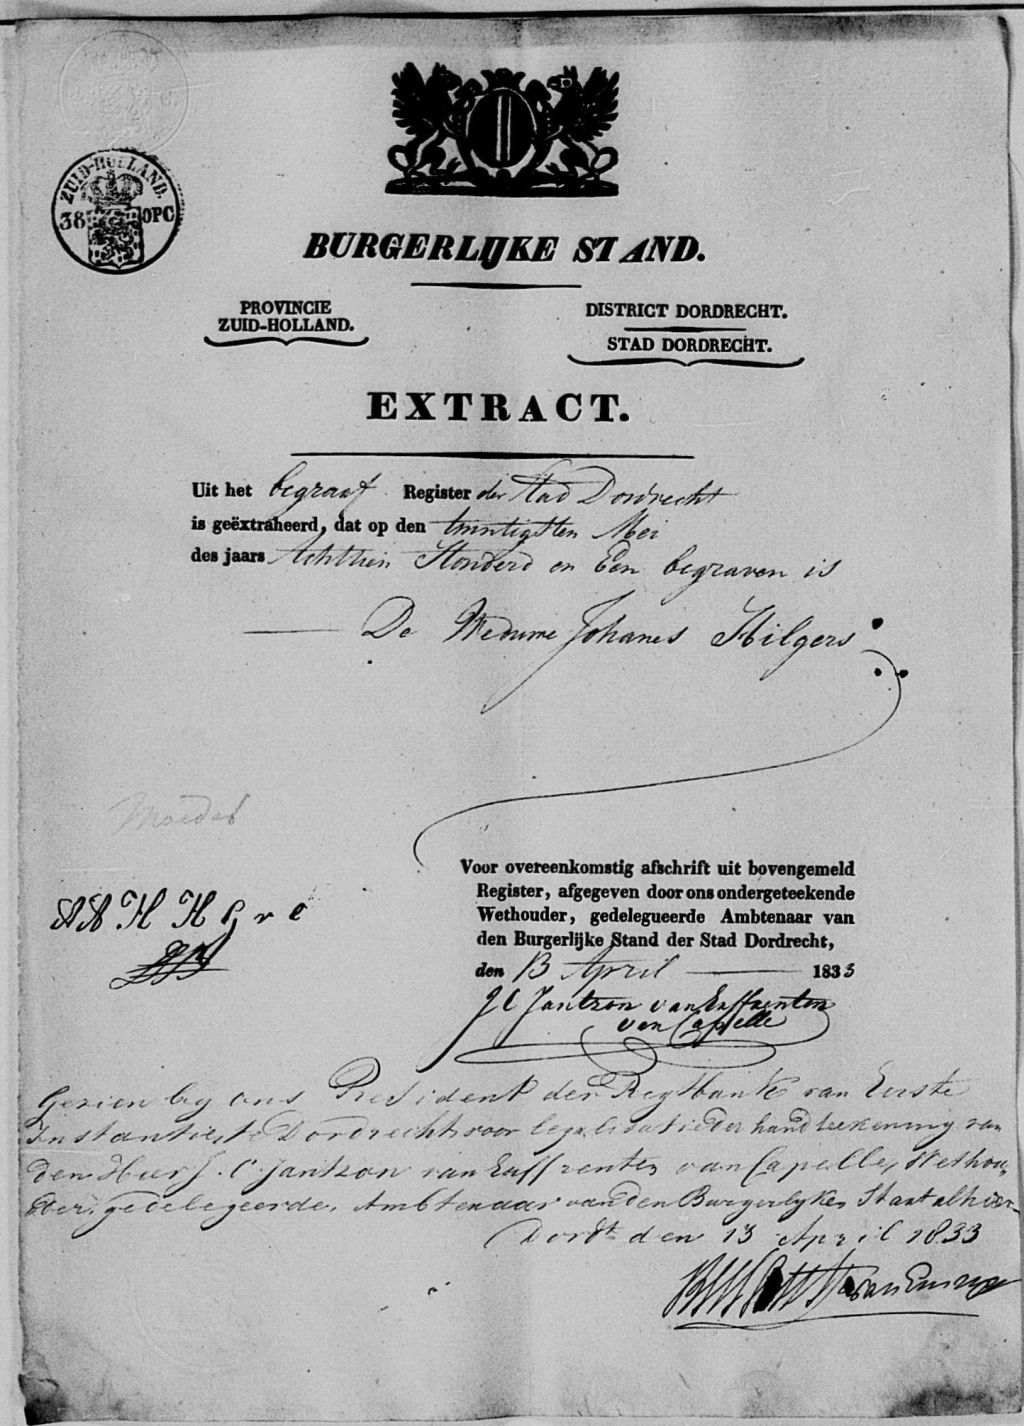 ZUID-HOLLAND.
38 OPC
BURGERLIJKE STAND.
PROVINCIE
ZUID-HOLLAND.
DISTRICT DORDRECHT.
STAD DORDRECHT.
EXTRACT.
Uit het begraaf Register der Stad Dordrecht
is geëxtraheerd, dat op den twintigsten Mei
des jaars Achttien Honderd en Een begraven is
De Weduwe Johanes Hilgers
Moeder
Voor overeenkomstig afschrift uit bovengemeld
Register, afgegeven door ons ondergeteekende
Wethouder, gedelegueerde Ambtenaar van
den Burgerlijke Stand der Stad Dordrecht,
den 13 April 1833
J C Jantzon van Erffrenten
van Capelle
Gezien by ons President der Regtbank van Eerste
Instantie te Dordrecht voor legalisatie der handteekening van
den Heer J. C. Jantzon van Erffrenten van Capelle, Wethou-
der, gedelegeerde Ambtenaar van den Burgerlyken Staat alhier
Dordt den 13 April 1833